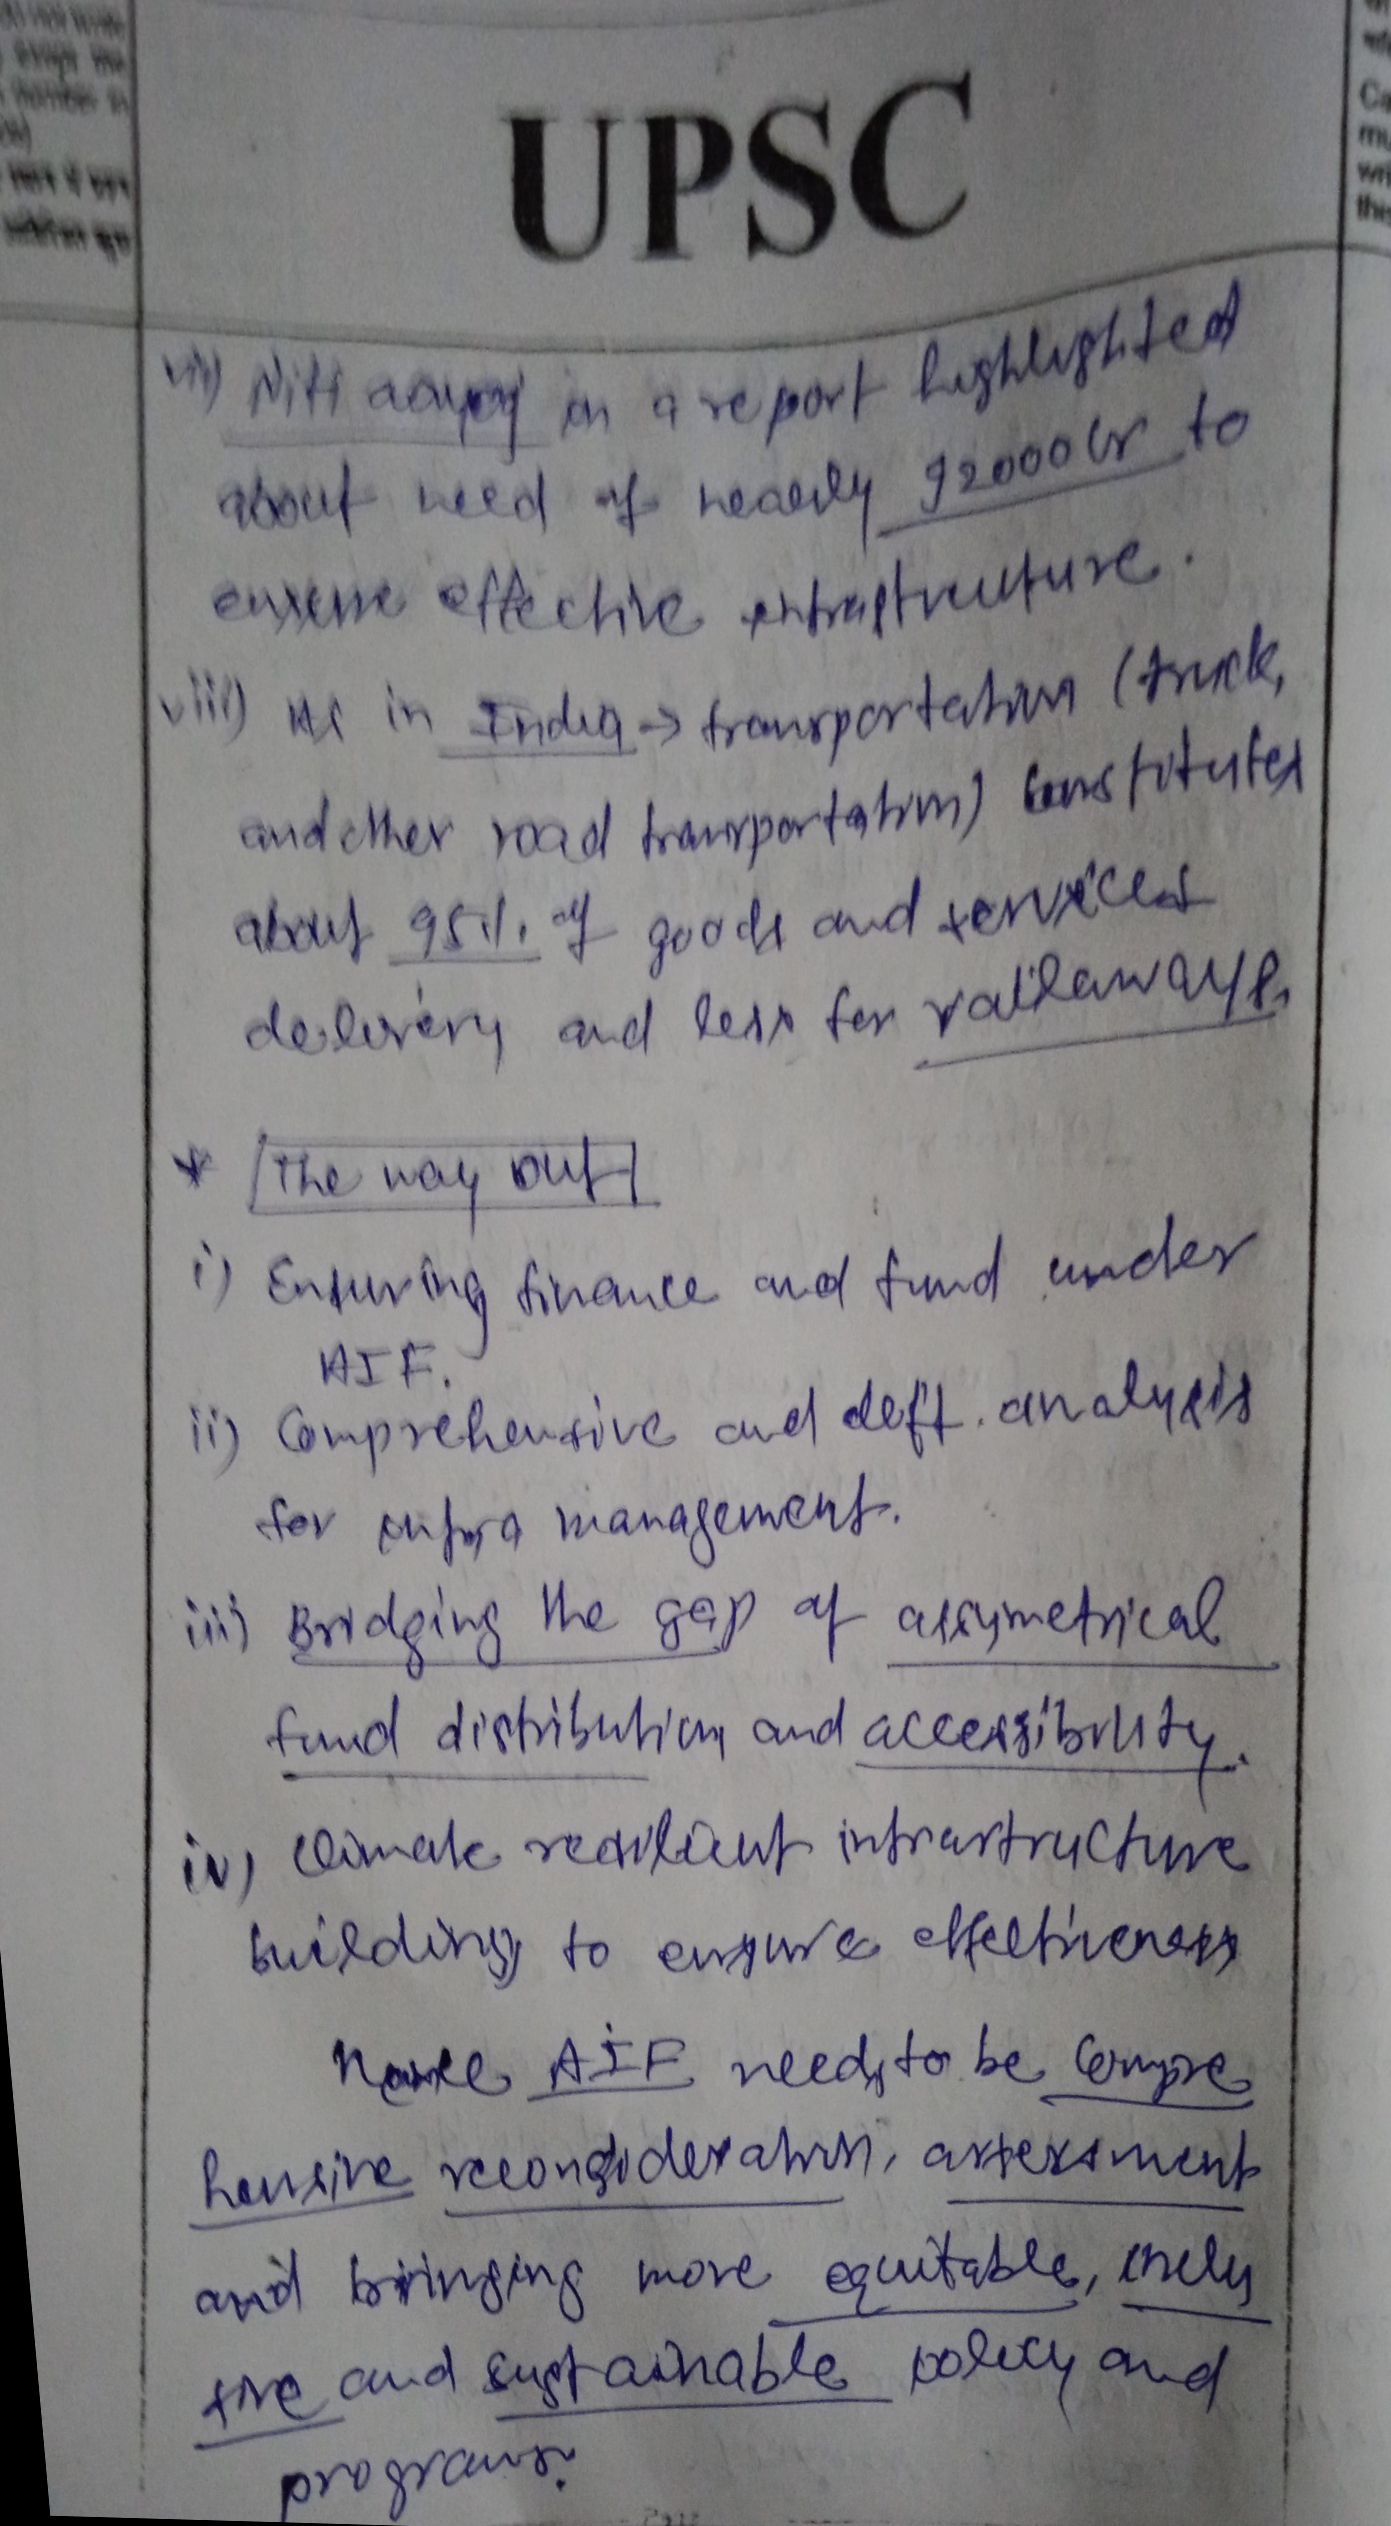 UPSC
vii) Niti aayog in a report highlighted
about need of nearly 92000 Cr to
ensure effective infrastructure.
viii) As in India → transportation (truck,
and other road transportation) constitutes
about 95% of goods and services
delivery and less for railaways.
* The way out
i) Ensuring finance and fund under
AIF.
ii) Comprehensive and deft analysis
for infra management.
iii) Bridging the gap of assymetrical
fund distribution and accessibility.
iv) Climate resilient infrastructure
building to ensure effectiveness
Hence AIF needs to be compre
hensive reconsideration, assessment
and bringing more equitable, inclu
sive and sustainable policy and
programs.